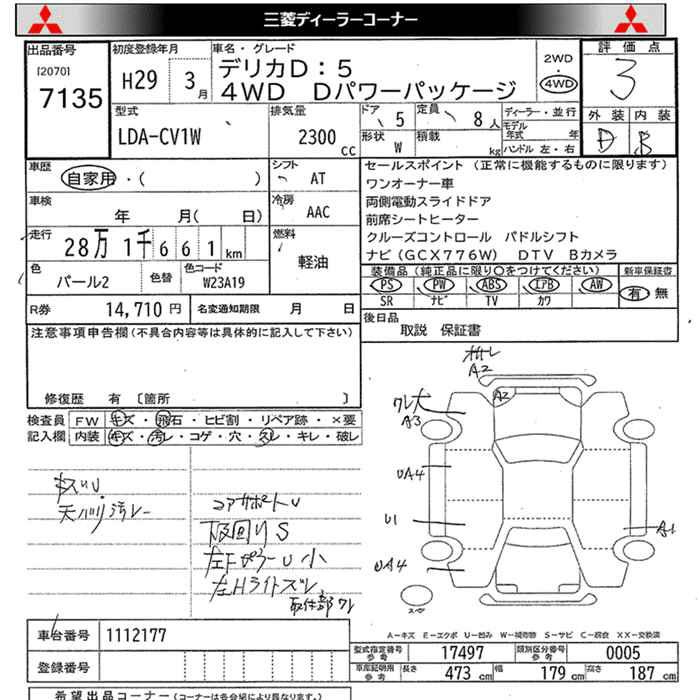 三菱ディーラーコーナー
出品番号
[2070]
7135
初度登録年月
H29 3月
車名・グレード
デリカD：5
4WD Dパワーパッケージ
2WD
4WD
評価点
3
外装 内装
D B
型式
LDA-CV1W
排気量
2300 cc
ドア 5
定員 8人
形状 W
積載 kg
ディーラー・並行
モデル年式 年
ハンドル 左・右
車歴
自家用・( )
車検
年 月( 日)
走行
28万1千661km
色
パール2
色替
色コード
W23A19
シフト
AT
冷房
AAC
燃料
軽油
セールスポイント (正常に機能するものに限ります)
ワンオーナー車
両側電動スライドドア
前席シートヒーター
クルーズコントロール パドルシフト
ナビ(GCX776W) DTV Bカメラ
装備品(純正品に限り〇をつけてください)
PS PW ABS エアB AW
SR ナビ TV カワ
新車保証書
有 無
R券 14,710円
名変通知期限 月 日
後日品
取説 保証書
注意事項申告欄(不具合内容等は具体的に記入して下さい)
修復歴 有 [箇所 ]
検査員記入欄
FW キズ・飛石・ヒビ割・リペア跡・×要
内装 キズ・汚レ・コゲ・穴・スレ・キレ・破レ
天バリ汚レ
コアサポートU
下廻りS
左Fピラー U 小
左Hライトズレ
取付部ワレ
A2
A2
ワレ大
A3
UA4
U1
UA4
A1
スペア
A－キズ E－エクボ U－凹み W－補修跡 S－サビ C－腐食 XX－交換済
車台番号 1112177
登録番号
型式指定番号 参考 17497
類別区分番号 参考 0005
車庫証明用 参考 長さ 473 cm 幅 179 cm 高さ 187 cm
希望出品コーナー(コーナーは各会場により異なります)